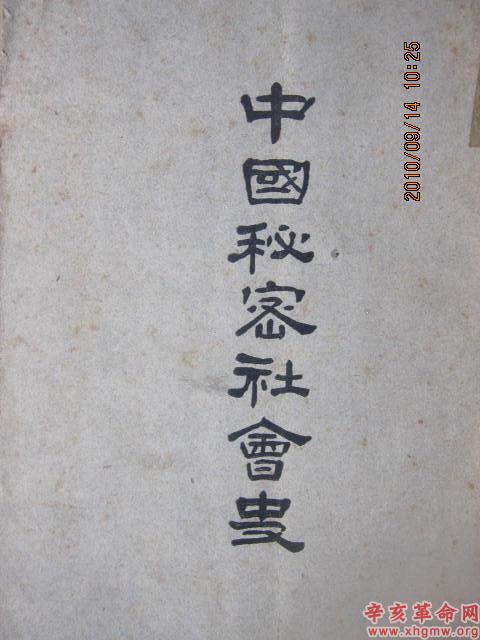 中國秘密社會史
2010/09/14 10:25
辛亥革命网
www.xhgmw.org